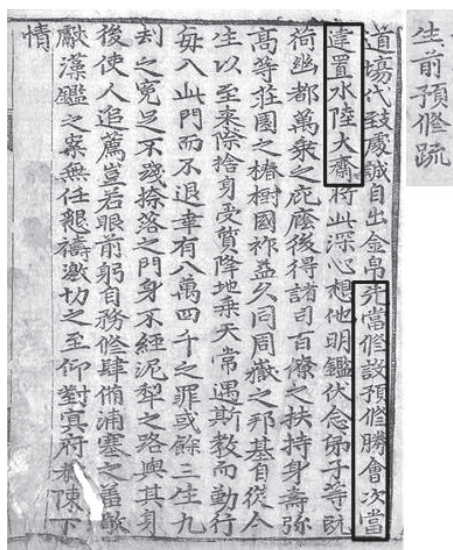 生前預修疏
道場代致虔誠自出金帛先當修設預修勝會次當
違置水陸大齋將此深心想他明鑑伏念弟子等旣
荷幽都萬衆之庇廕後得諸司百僚之扶持身壽弥
高等莊園之椿樹國祚益久同周嶽之邦基自從今
生以至來際捨身受質降地乗天常遇斯教而勤行
每入此門而不退幸有八萬四千之罪或餘三生九
刧之寃足不踐捺落之門身不經泥犁之路與其身
後使人追薦豈若眼前躬自務修肆脩蒲塞之羞敢
獻藻鑑之寀無任懇禱激切之至仰對冥府陳下
情